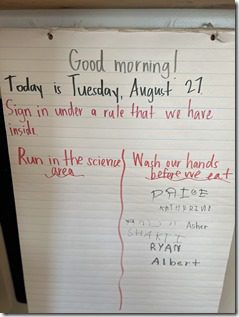 Good morning!
Today is Tuesday, August 27.
Sign in under a rule that we have
inside.
Run in the science
area
Wash our hands
before we eat
PAIGE
KATHERINE
Asher
SHAKTI
RYAN
Albert